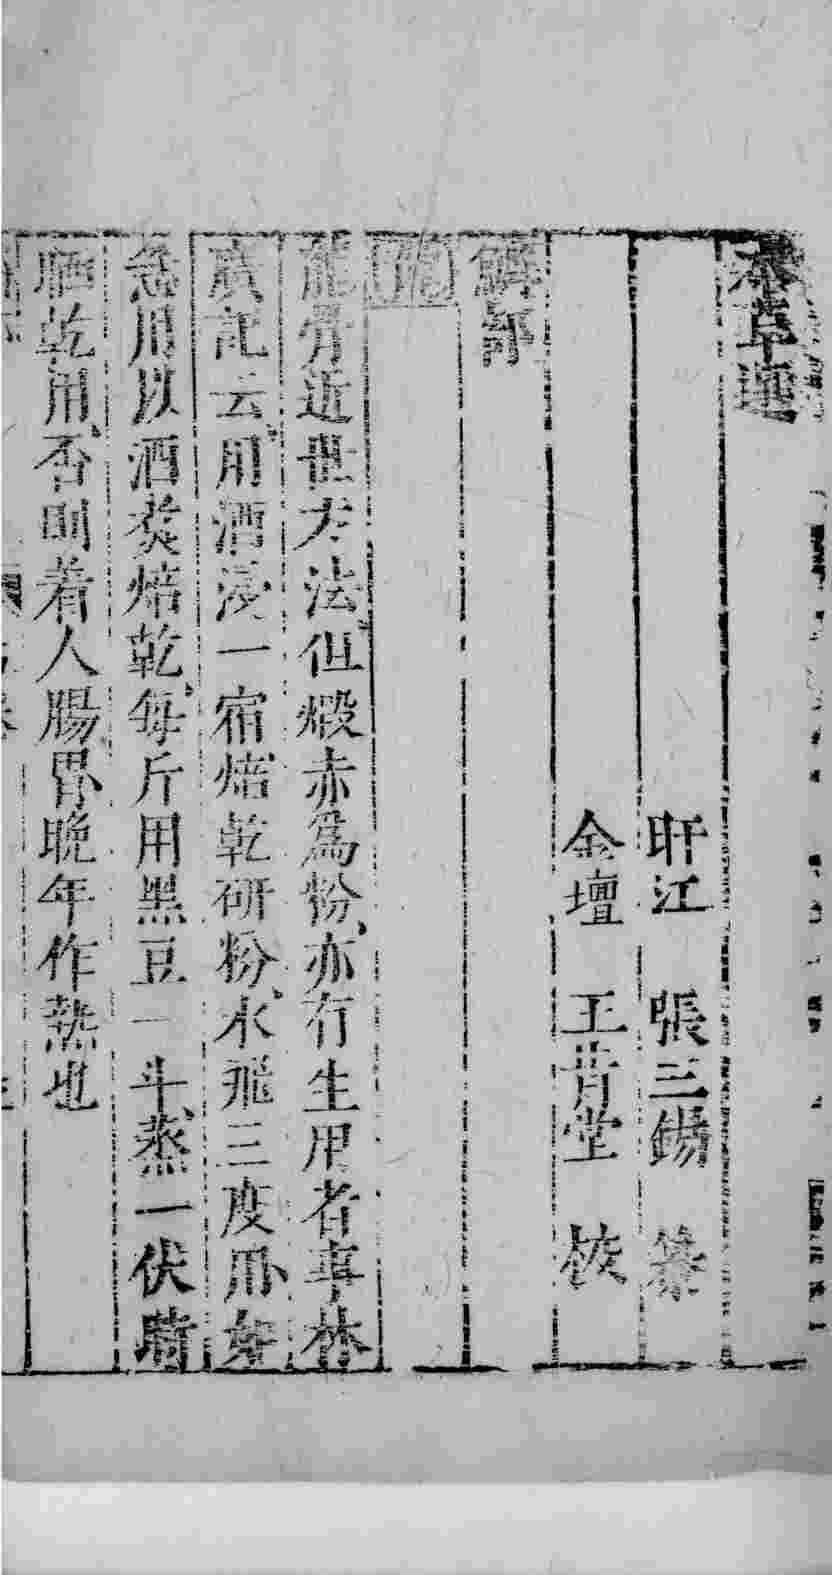 本草選
盱江　張三錫　纂
金壇　王肯堂　校
鱗部
龍
龍骨近世方法但煅赤爲粉亦有生用者事林
廣記云用酒浸一宿焙乾研粉水飛三度用如
急用以酒煑焙乾每斤用黑豆一斗蒸一伏時
晒乾用否則着人腸胃晚年作熱也